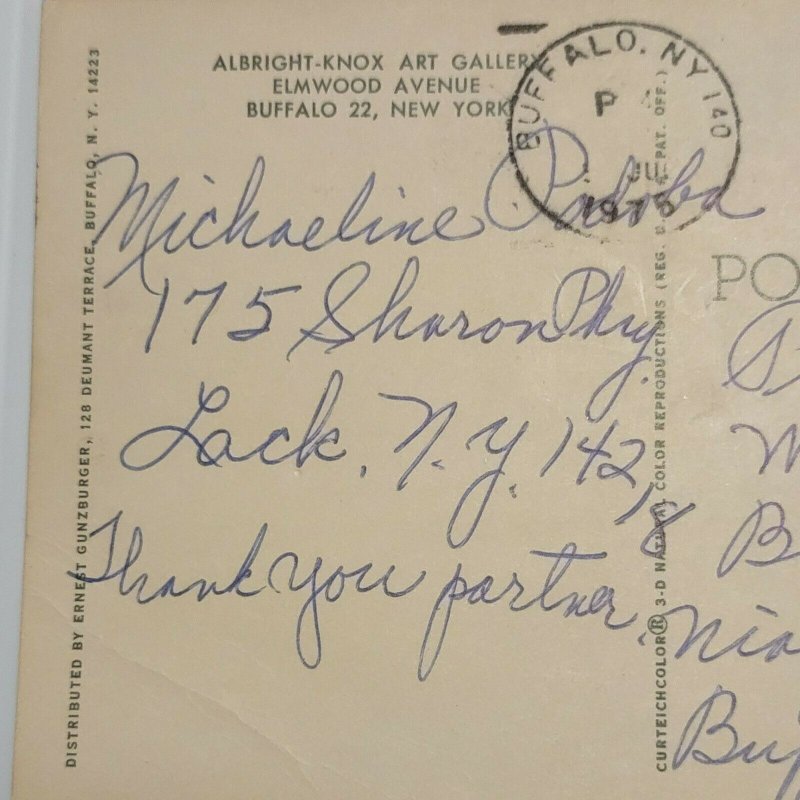 ALBRIGHT-KNOX ART GALLERY
ELMWOOD AVENUE
BUFFALO 22, NEW YORK
BUFFALO, NY 140
P
JU
1975
Michaeline
175 Sharon Pky.
Lack, N.Y. 14218
Thank you partner,
PO
Bu
DISTRIBUTED BY ERNEST GUNZBURGER, 128 DEUMANT TERRACE, BUFFALO, N. Y. 14223
CURTEICHCOLOR® 3-D NATURAL COLOR REPRODUCTIONS (REG. U.S.A. PAT. OFF.)